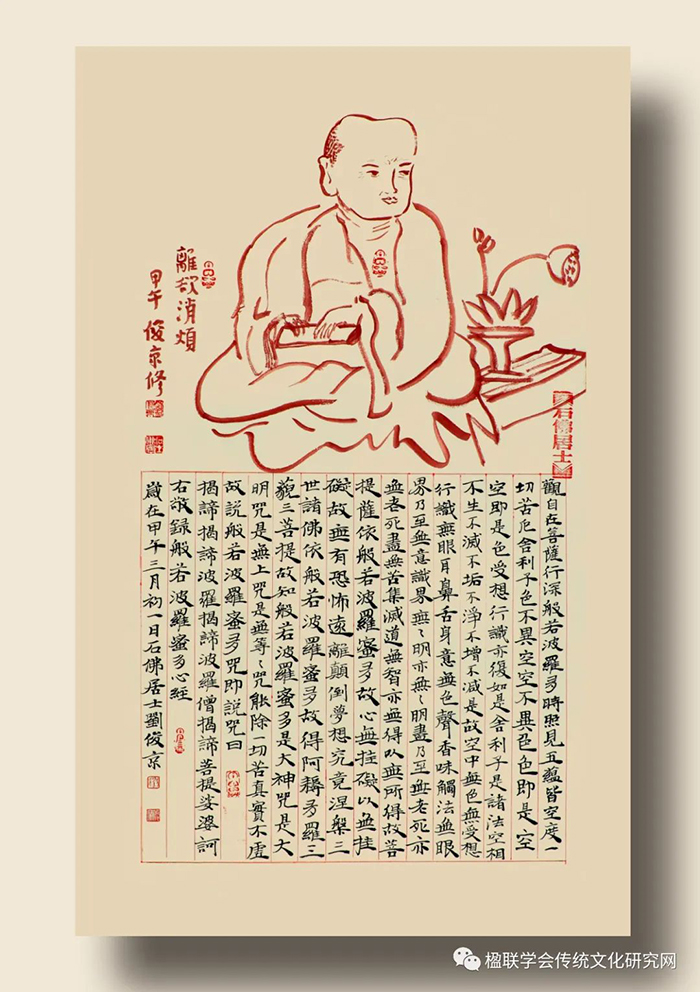 離欲消煩
甲午 俊京修
石佛居士
觀自在菩薩行深般若波羅多時照見五蘊皆空度一
切苦厄舍利子色不異空空不異色色即是空
空即是色受想行識亦復如是舍利子是諸法空相
不生不滅不垢不淨不增不減是故空中無色無受想
行識無眼耳鼻舌身意無色聲香味觸法無眼
界乃至無意識界無〻明亦無〻明盡乃至無老死亦
無老死盡無苦集滅道無智亦無得以無所得故菩
提薩依般若波羅蜜多故心無挂礙以無挂
礙故無有恐怖遠離顛倒夢想究竟涅槃三
世諸佛依般若波羅蜜多故得阿耨多羅三
藐三菩提故知般若波羅蜜多是大神咒是大
明咒是無上咒是無等〻咒能除一切苦真實不虛
故説般若波羅蜜多咒即説咒曰
揭諦揭諦波羅揭諦波羅僧揭諦菩提娑婆訶
右敬録般若波羅蜜多心經
歲在甲午三月初一日石佛居士劉俊京
楹联学会传统文化研究网